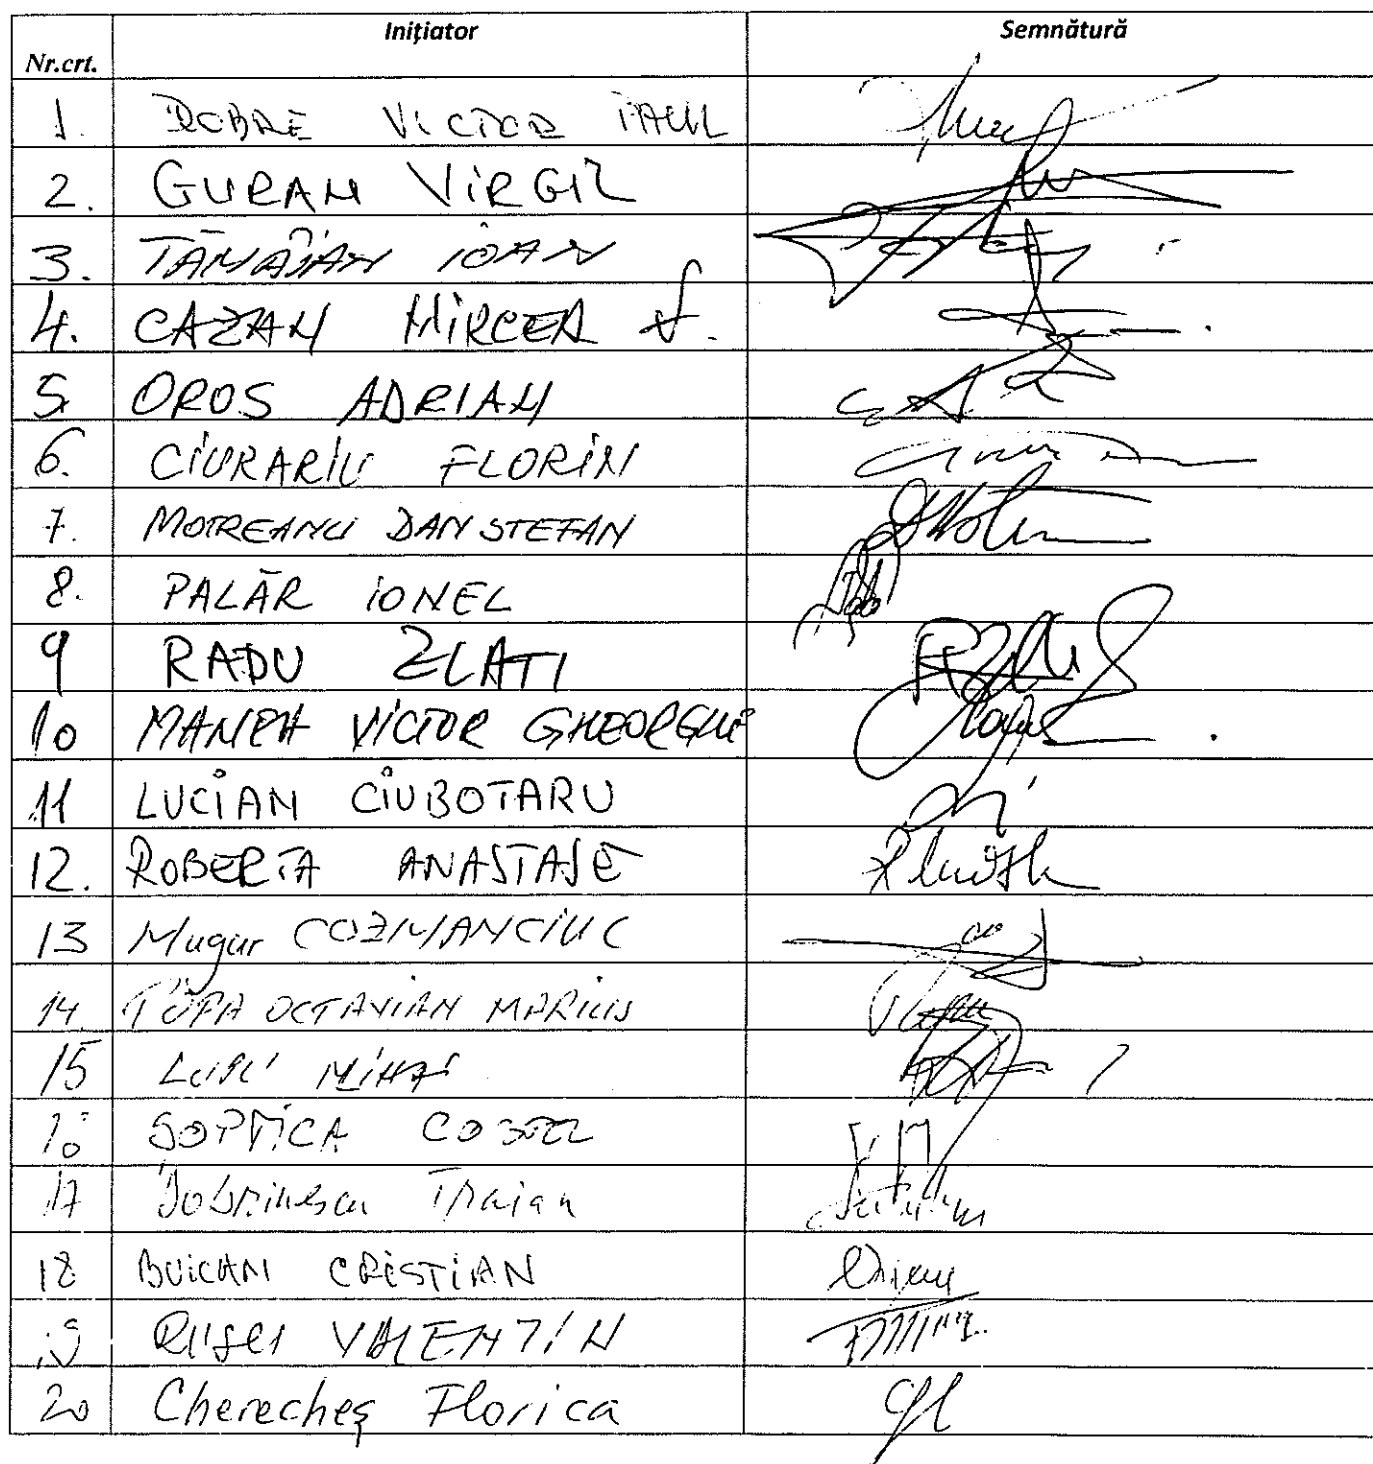 Inițiator Semnătură
Nr.crt.
1. DOBRE VICTOR PAUL
2. GURAN VIRGIL
3. TĂMÂIAN IOAN
4. CAZAN MIRCEA V.
5 OROS ADRIAN
6. CIURARIU FLORIN
7. MOTREANU DAN STEFAN
8. PALĂR IONEL
9 RADU ZLATI
10 MANEA VICTOR GHEORGHE
11 LUCIAN CIUBOTARU
12. ROBERTA ANASTASE
13 Mugur COZMANCIUC
14. ȚOPA OCTAVIAN MARIUS
15 LUPU MIHAI
16 ȘOPTICĂ COSTEL
17 Dobrinescu Traian
18 BUICAN CRISTIAN
19 RUSU VALENTIN
20 Cherecheș Florica